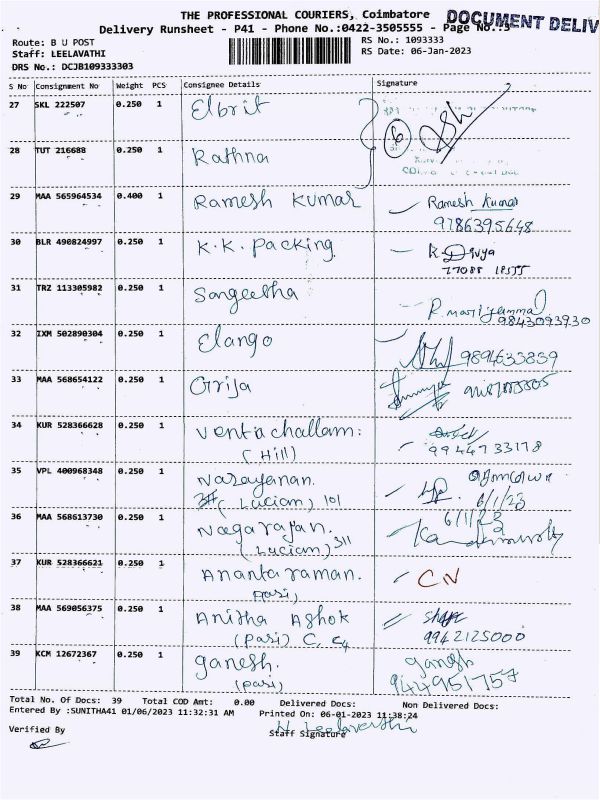 THE PROFESSIONAL COURIERS, Coimbatore
DOCUMENT DELIV
Delivery Runsheet - P41 - Phone No.:0422-3505555 - Page No.:3
Route: B U POST
RS No.: 1093333
Staff: LEELAVATHI
RS Date: 06-Jan-2023
DRS No.: DCJB109333303
S No Consignment No Weight PCS Consignee Details Signature
27 SKL 222507 0.250 1 Elbrit
6
28 TUT 216688 0.250 1 Rathna
29 MAA 565964534 0.400 1 Ramesh Kumar Ramesh Kumar
9786395648
30 BLR 490824997 0.250 1 K.K. Packing K. Divya
77088 18555
31 TRZ 113305982 0.250 1 Sangeetha
R. Mariyammal
9843093930
32 IXM 502890304 0.250 1 Elango
9894633839
33 MAA 568654122 0.250 1 Girija
34 KUR 528366628 0.250 1 Ventachallam:
(Hill)
9944733178
35 VPL 400968348 0.250 1 Narayanan.
(Luciam) 101
6/1/23
36 MAA 568613730 0.250 1 Nagarajan.
6/1/23
(Luciam) 311
37 KUR 528366621 0.250 1 Anantaraman.
(Pari)
CN
38 MAA 569056375 0.250 1 Anitha Ashok
(Pari) C, C4
9962125000
39 KCM 12672367 0.250 1 ganesh.
(Pari)
ganesh
9444951757
Total No. Of Docs: 39 Total COD Amt: 0.00 Delivered Docs: Non Delivered Docs:
Entered By :SUNITHA41 01/06/2023 11:32:31 AM Printed On: 06-01-2023 11:38:24
N. Leelavathi
Verified By Staff Signature